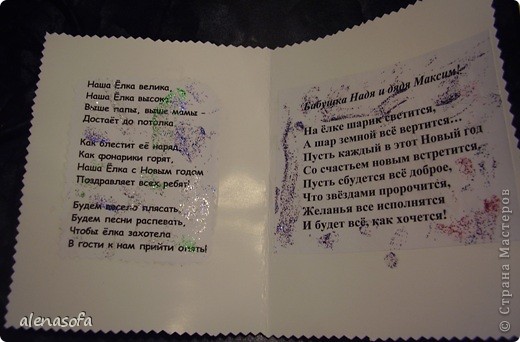 Наша Ёлка велика,
Наша Ёлка высока,
Выше папы, выше мамы -
Достаёт до потолка.
Как блестит её наряд,
Как фонарики горят,
Наша Ёлка с Новым годом
Поздравляет всех ребят!
Будем весело плясать,
Будем песни распевать,
Чтобы ёлка захотела
В гости к нам прийти опять!
Бабушка Надя и дядя Максим!
На ёлке шарик светится,
А шар земной всё вертится...
Пусть каждый в этот Новый год
Со счастьем новым встретится,
Пусть сбудется всё доброе,
Что звёздами пророчится,
Желанья все исполнятся
И будет всё, как хочется!
alenasofa
© Страна Мастеров